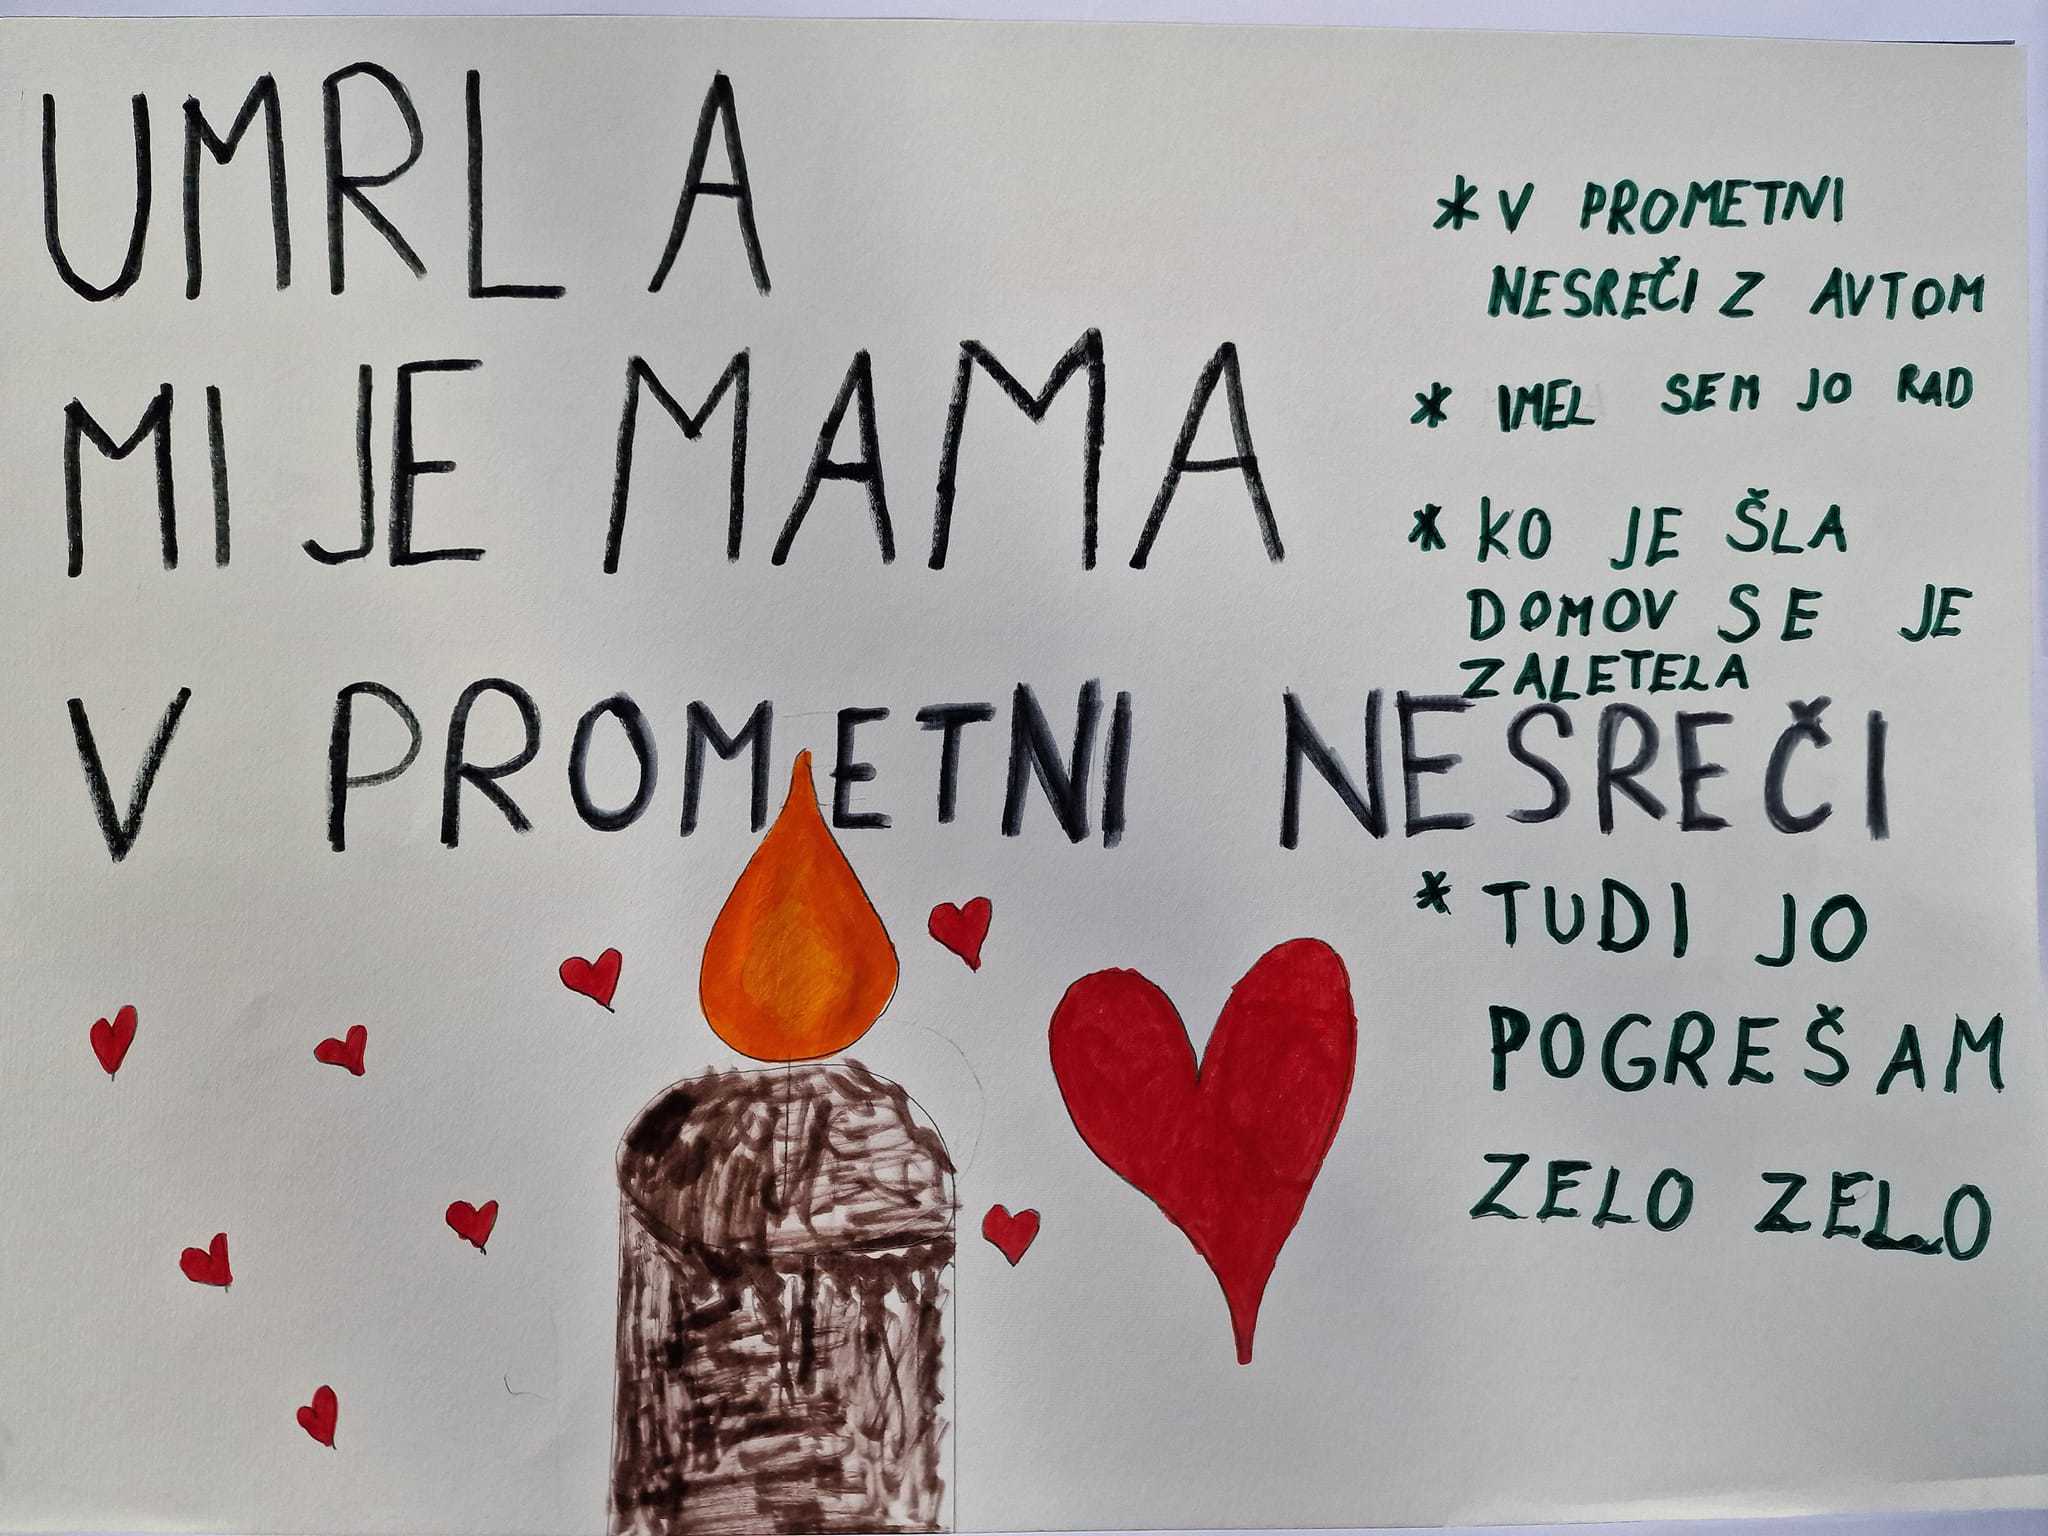 UMRLA
MI JE MAMA
V PROMETNI NESREČI
* V PROMETNI
NESREČI Z AVTOM
* IMEL SEM JO RAD
* KO JE ŠLA
DOMOV SE JE
ZALETELA
* TUDI JO
POGREŠAM
ZELO ZELO